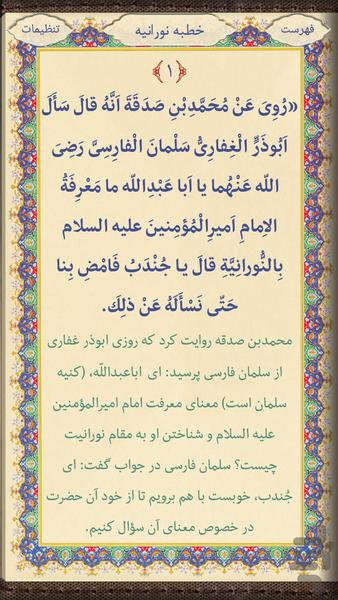 فهرست
خطبه نورانیه
تنظیمات
﴿۱﴾
«رُوِیَ عَنْ مُحَمَّدِبْنِ صَدَقَةَ اَنَّهُ قالَ سَأَلَ
اَبُوذَرٍّ الْغِفاریُّ سَلْمانَ الْفارِسِیَّ رَضِیَ
اللّه عَنْهُما یا اَبا عَبْدِاللّه ما مَعْرِفَةُ
الاِمامِ اَمیرِالْمُؤمِنینَ علیه السلام
بِالنُّورانِیَّةِ قالَ یا جُنْدَبُ فَامْضِ بِنا
حَتّی نَسْأَلَهُ عَنْ ذلِكَ.
محمدبن صدقه روایت کرد که روزی ابوذر غفاری
از سلمان فارسی پرسید: ای اباعبداللّه، (کنیه
سلمان است) معنای معرفت امام امیرالمؤمنین
علیه السلام و شناختن او به مقام نورانیت
چیست؟ سلمان فارسی در جواب گفت: ای
جُندب، خوبست با هم برویم تا از خود آن حضرت
در خصوص معنای آن سؤال کنیم.